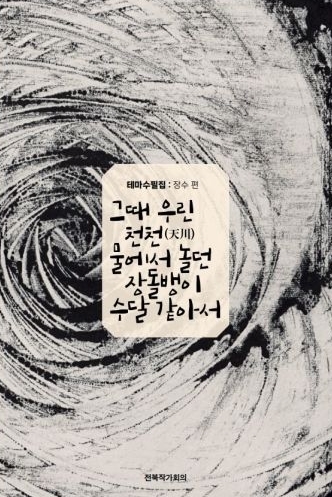 테마수필집 : 장수 편
그때 우린
천천(天川)
물에서 놀던
장돌뱅이
수달 같아서
전북작가회의